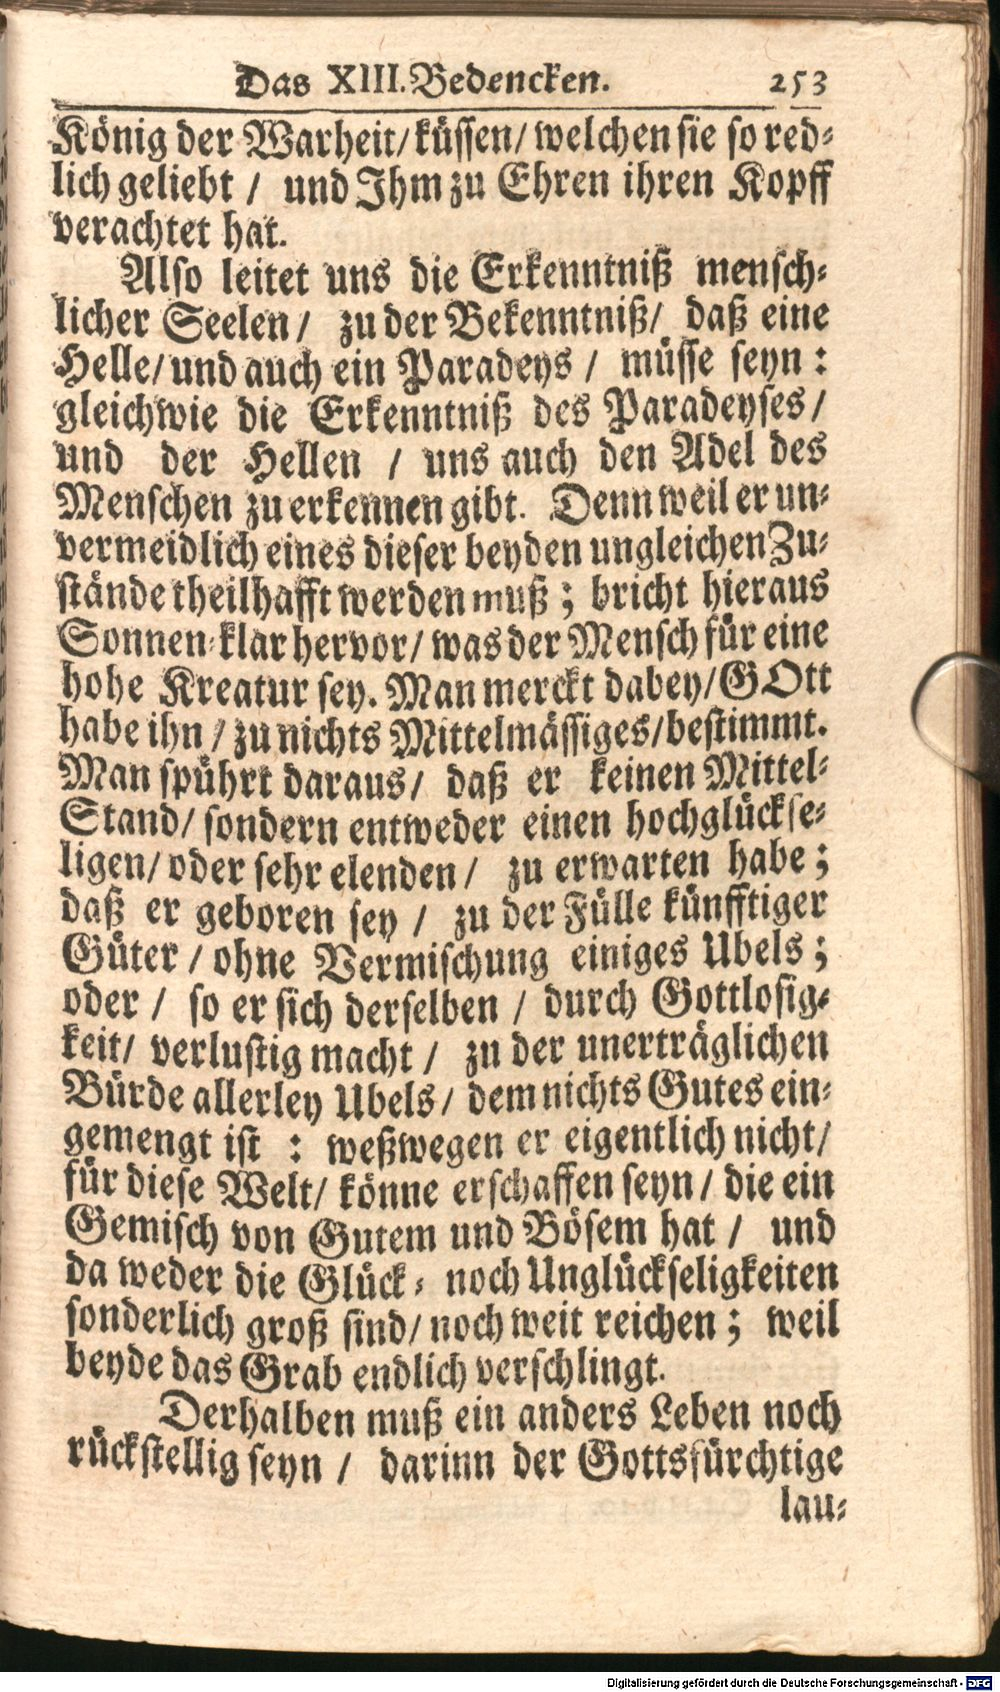 Das XIII. Bedencken. 253
König der Warheit/ küssen/ welchen sie so red-
lich geliebt / und Ihm zu Ehren ihren Kopff
verachtet hat.
Also leitet uns die Erkenntniß mensch-
licher Seelen/ zu der Bekenntniß/ daß eine
Helle/ und auch ein Paradeys / müsse seyn :
gleichwie die Erkenntniß des Paradeyses /
und der Hellen / uns auch den Adel des
Menschen zu erkennen gibt. Denn weil er un-
vermeidlich eines dieser beyden ungleichen Zu-
stände theilhafft werden muß ; bricht hieraus
Sonnen-klar hervor/ was der Mensch für eine
hohe Kreatur sey. Man merckt dabey/ GOtt
habe ihn / zu nichts Mittelmässiges/ bestimmt.
Man spührt daraus/ daß er keinen Mittel-
Stand/ sondern entweder einen hochglückse-
ligen/ oder sehr elenden / zu erwarten habe ;
daß er geboren sey / zu der Fülle künfftiger
Güter / ohne Vermischung einiges Ubels ;
oder / so er sich derselben / durch Gottlosig-
keit/ verlustig macht / zu der unerträglichen
Bürde allerley Ubels/ dem nichts Gutes ein-
gemengt ist : weßwegen er eigentlich nicht/
für diese Welt/ könne erschaffen seyn / die ein
Gemisch von Gutem und Bösem hat / und
da weder die Glück- noch Unglückseligkeiten
sonderlich groß sind/ noch weit reichen ; weil
beyde das Grab endlich verschlingt.
Derhalben muß ein anders Leben noch
rückstellig seyn / darinn der Gottsfürchtige
lau-
Digitalisierung gefördert durch die Deutsche Forschungsgemeinschaft - DFG